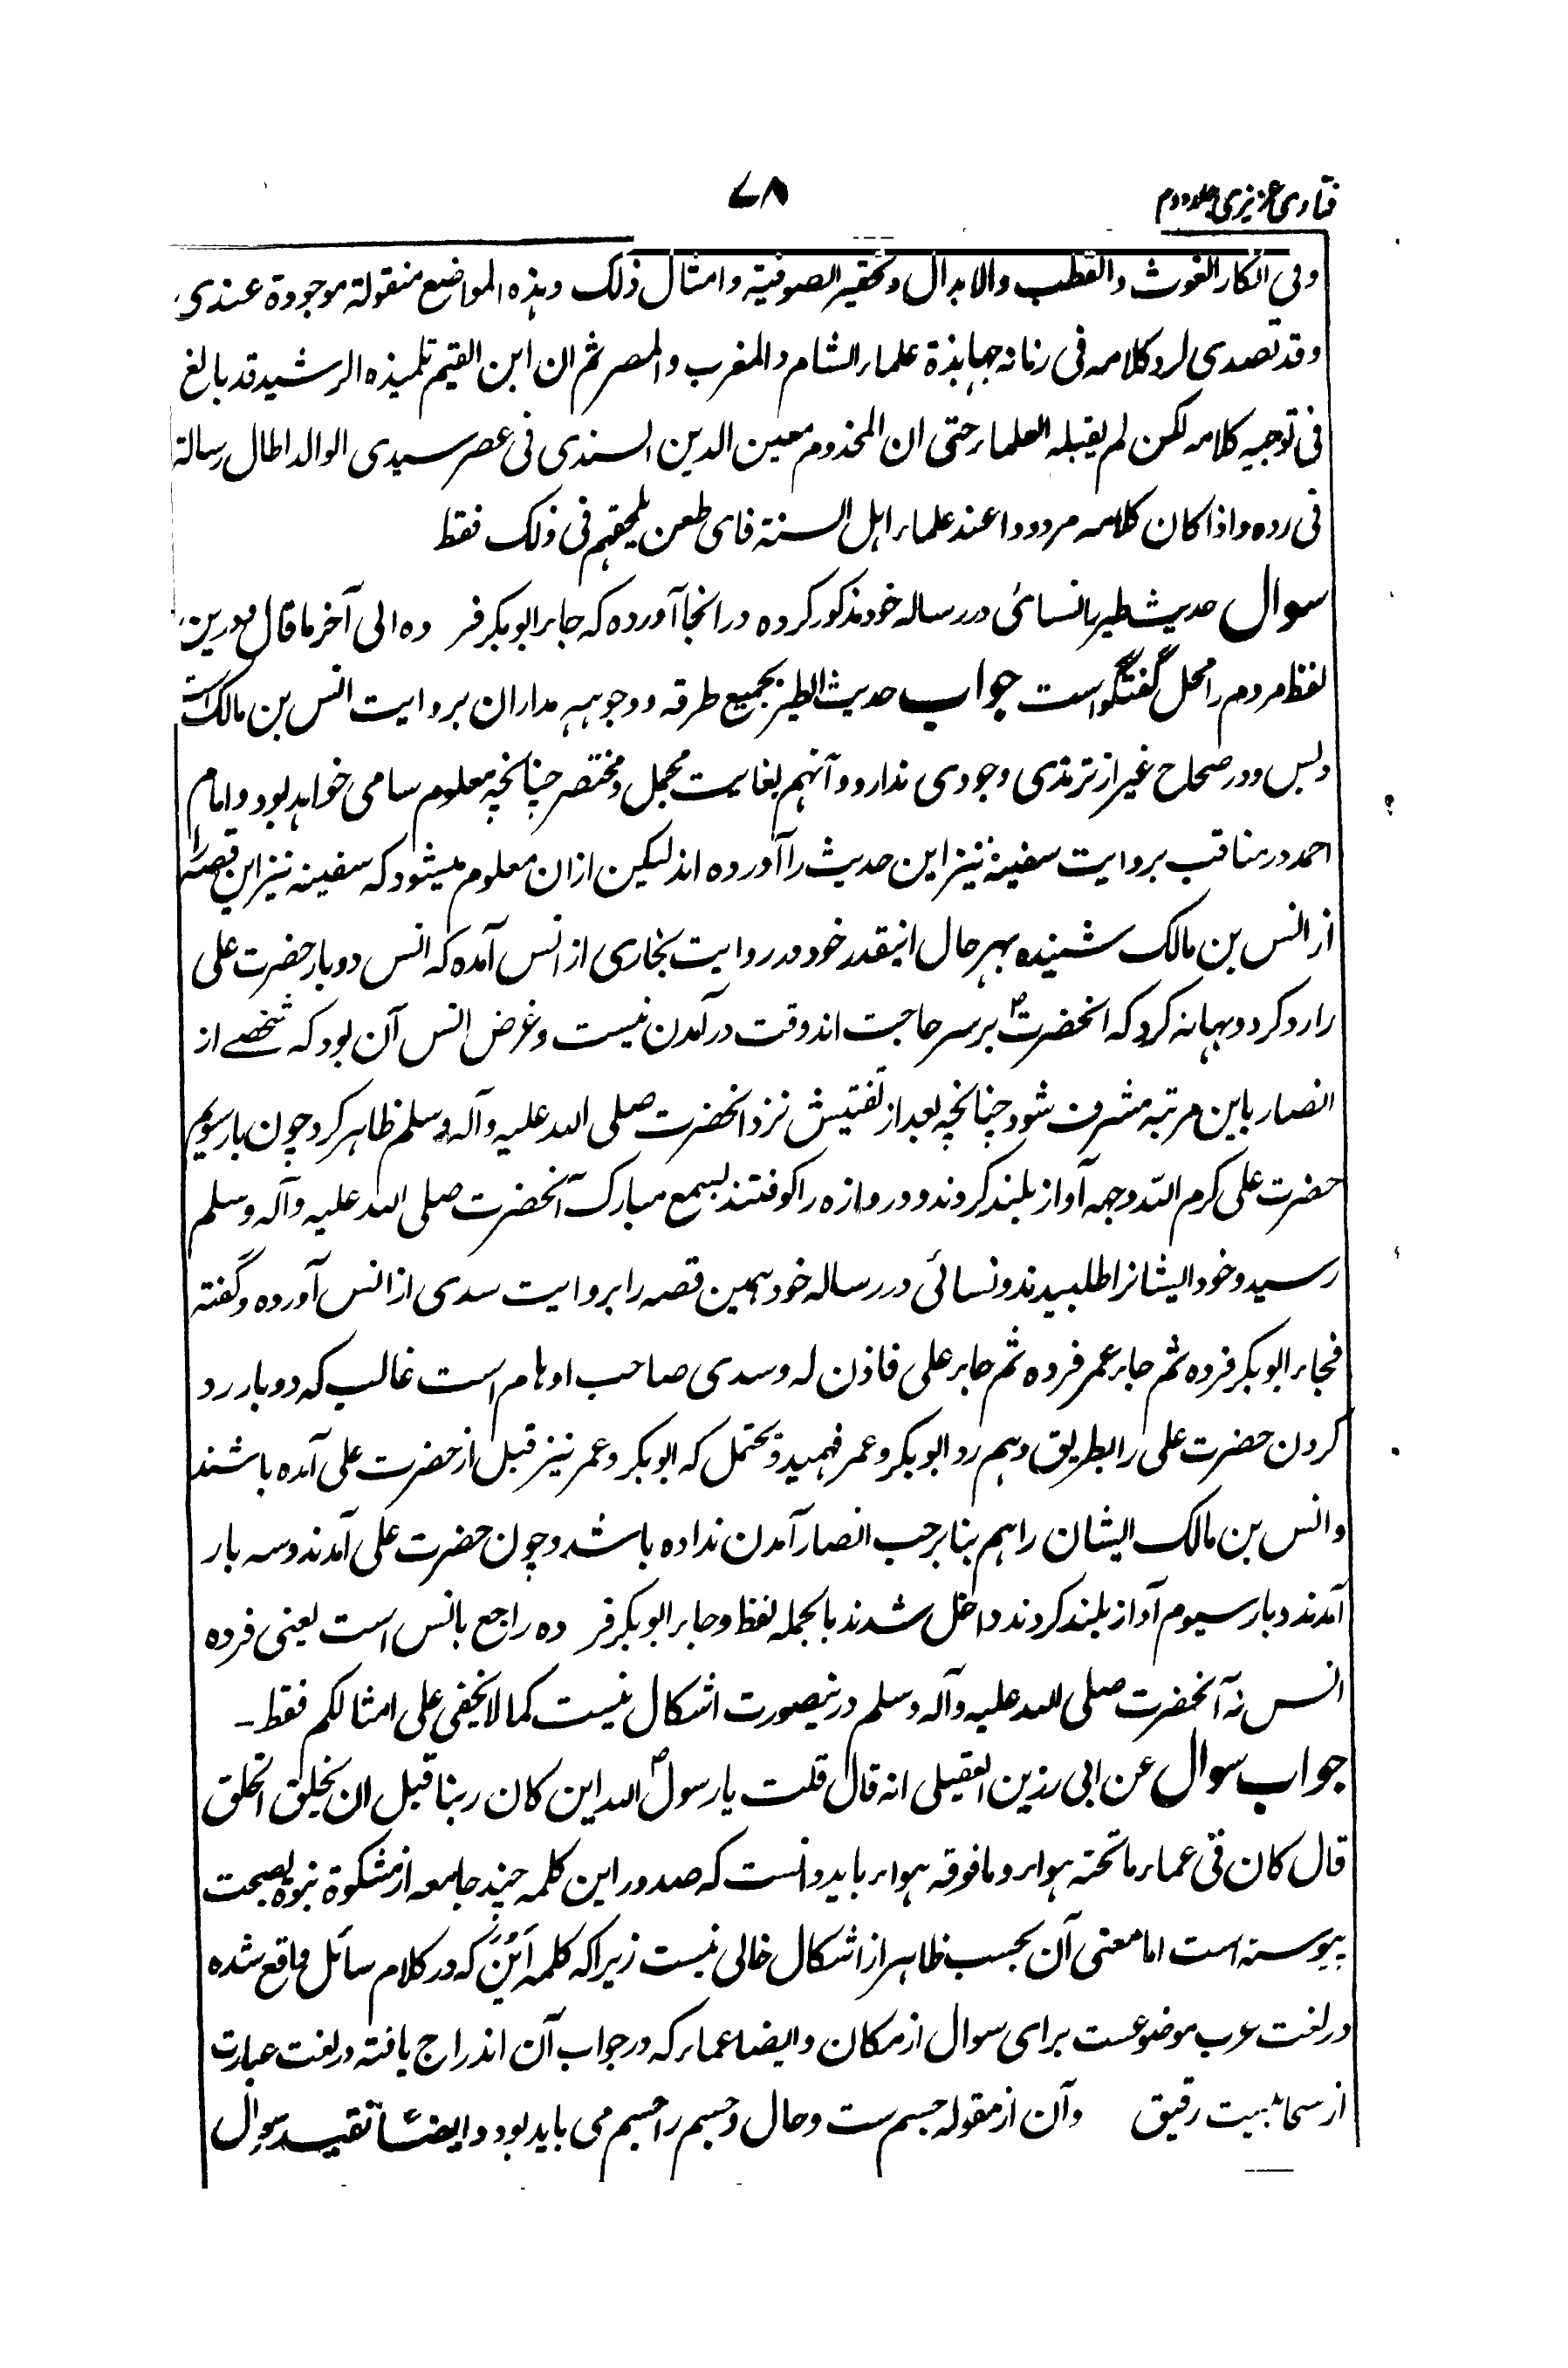 فتاوی عزیزی جلد دوم
۷۸
وفی انکار الغوث والقطب والابدال وتحقیر الصوفیة وامثال ذلک وہذہ المواضع منقولة موجودة عندی
وقد تصدی لرد کلامہ فی زمانہ جہابذة علماء الشام والمغرب والمصر ثم ان ابن القیم تلمیذہ الرشید قد بالغ
فی توجیہ کلامہ لکن لم یقبلہ العلماء حتی ان المخدوم معین الدین السندی فی عصر سیدی الوالد اطال رسالة
فی ردہ واذا کان کلامہ مردودا عند علماء اہل السنة فای طعن یلحقہم فی ذلک فقط
سوال حدیث طیر را نسائی در رسالہ خود مذکور کردہ در انجا آوردہ کہ جاء ابو بکر فر دہ الی آخر ما قال و درین
لفظ مردم را محل گفتگو است جواب حدیث الطیر بجمیع طرقہ ووجوہہ مدار ان بروایت انس بن مالک است
وبس ودر صحاح غیر از ترمذی وجودی ندارد وآنہم بغایت مجمل ومختصر چنانچہ معلوم سامی خواہد بود وامام
احمد در مناقب بروایت سفینہ نیز این حدیث را آوردہ اند لیکن ازان معلوم میشود کہ سفینہ نیز این قصہ را
از انس بن مالک شنیدہ بہر حال اینقدر خود در روایت بخاری از انس آمدہ کہ انس دو بار حضرت علی
را رد کرد و بہانہ کرد کہ انحضرتؐ بر سر حاجت اند وقت درآمدن نیست وغرض انس آن بود کہ شخصے از
انصار باین مرتبہ مشرف شود چنانچہ بعد از تفتیش نزد انحضرت صلی اللہ علیہ وآلہ وسلم ظاہر کرد چون بار سویم
حضرت علی کرم اللہ وجہہ آواز بلند کردند و دروازہ را کوفتند بسمع مبارک آنحضرت صلی اللہ علیہ وآلہ وسلم
رسید و خود ایشانرا طلبیدند و نسائی در رسالہ خود ہمین قصہ را بروایت سدی از انس آوردہ و گفتہ
فجاء ابو بکر فردہ ثم جاء عمر فردہ ثم جاء علی فاذن لہ وسدی صاحب اوہام است غالب کہ دو بار رد
کردن حضرت علی را بطریق وہم رد ابو بکر و عمر فہمید و تحتمل کہ ابو بکر و عمر نیز قبل از حضرت علی آمدہ باشند
وانس بن مالک ایشان را ہم بنابر حب انصار آمدن ندادہ باشد و چون حضرت علی آمدند و سہ بار
آمدند و بار سیوم آواز بلند کردند داخل شدند بالجملہ لفظ وجاء ابو بکر فر دہ راجع بانس است یعنی فردہ
انس نہ آنحضرت صلی اللہ علیہ وآلہ وسلم درینصورت اشکال نیست کما لا یخفی علی امثالکم فقط۔
جواب سوال عن ابی رزین العقیلی انہ قال قلت یا رسولؐ اللہ این کان ربنا قبل ان یخلق الخلق
قال کان فی عماء ما تحتہ ہواء وما فوقہ ہواء باید دانست کہ صدور این کلمہ چند جامعہ از مشکوة نبوة بصحت
پیوستہ است اما معنی آن بحسب ظاہر از اشکال خالی نیست زیراکہ کلمہ اَیْنَ کہ در کلام سائل واقع شدہ
در لغت عرب موضوعست برای سوال از مکان وایضا عماء کہ در جواب آن اندراج یافتہ در لغت عبارت
از سحابیست رقیق وآن از مقولہ جسم ست وحال وجسم را جسم می باید بود وایضاً تقیید سوال